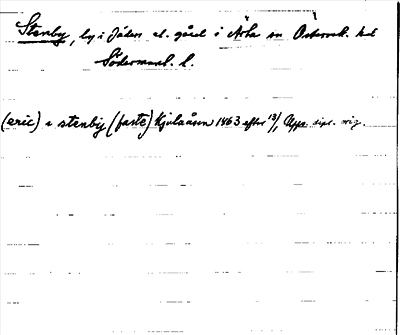 Stenby, by i Jäders el. gård i Ärla sn Österrek. hd
Södermanl. l.
(eric) i stenby (faste) Kjulaåsen 1463 efter 13/1 Upps. dipl. orig.